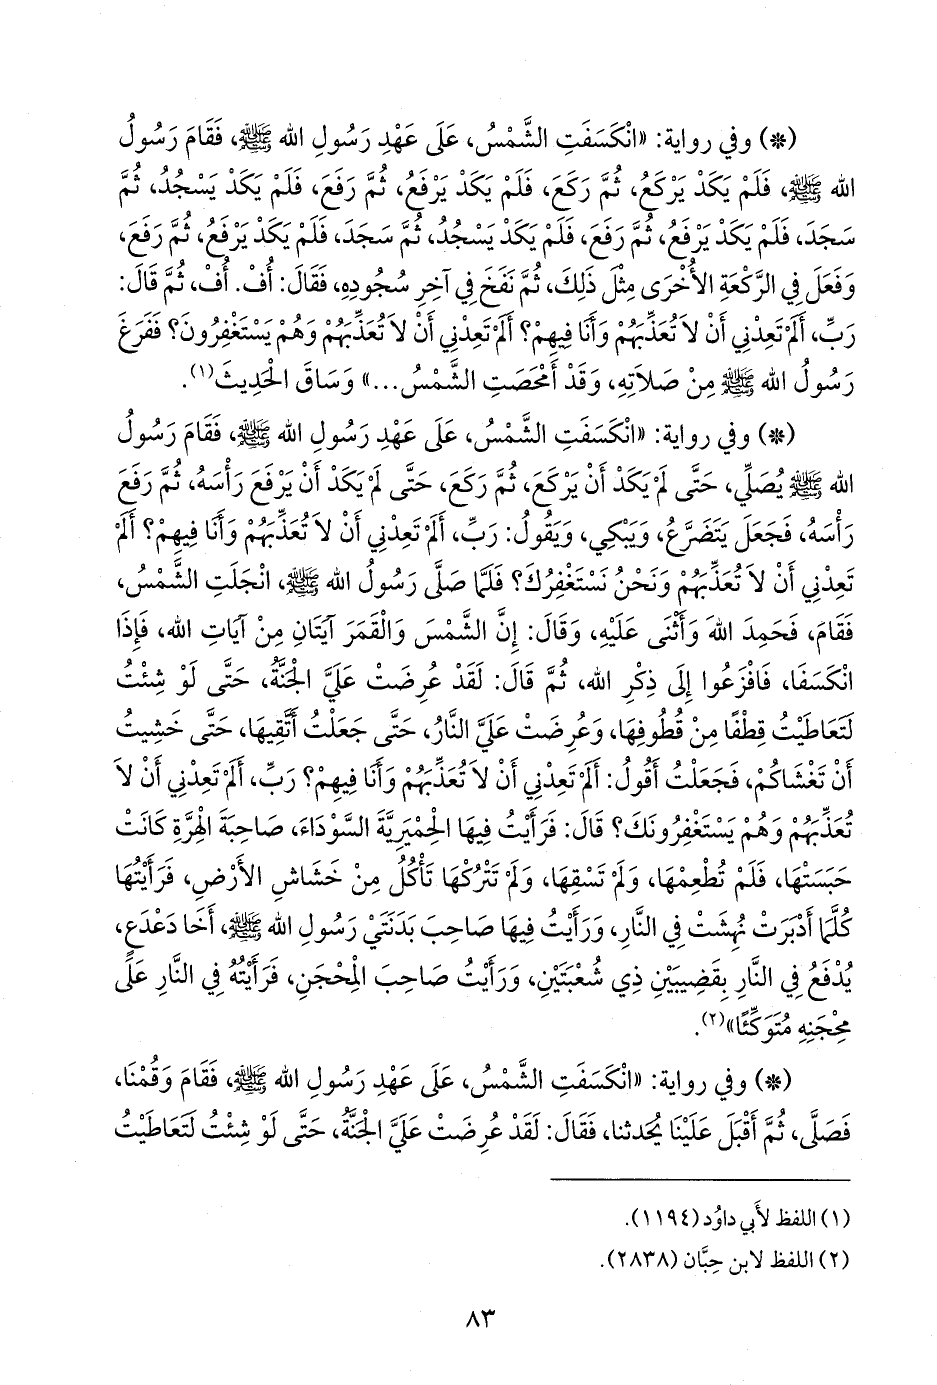 (*) وفي رواية: «انْكَسَفَتِ الشَّمْسُ، عَلَى عَهْدِ رَسُولِ الله ﷺ، فَقَامَ رَسُولُ
الله ﷺ، فَلَمْ يَكَدْ يَرْكَعُ، ثُمَّ رَكَعَ، فَلَمْ يَكَدْ يَرْفَعُ، ثُمَّ رَفَعَ، فَلَمْ يَكَدْ يَسْجُدُ، ثُمَّ
سَجَدَ، فَلَمْ يَكَدْ يَرْفَعُ، ثُمَّ رَفَعَ، فَلَمْ يَكَدْ يَسْجُدُ، ثُمَّ سَجَدَ، فَلَمْ يَكَدْ يَرْفَعُ، ثُمَّ رَفَعَ،
وَفَعَلَ فِي الرَّكْعَةِ الأُخْرَى مِثْلَ ذَلِكَ، ثُمَّ نَفَخَ فِي آخِرِ سُجُودِهِ، فَقَالَ: أُفْ. أُفْ، ثُمَّ قَالَ:
رَبِّ، أَلَمْ تَعِدْنِي أَنْ لاَ تُعَذِّبَهُمْ وَأَنَا فِيهِمْ؟ أَلَمْ تَعِدْنِي أَنْ لاَ تُعَذِّبَهُمْ وَهُمْ يَسْتَغْفِرُونَ؟ فَفَرَغَ
رَسُولُ الله ﷺ مِنْ صَلاَتِهِ، وَقَدْ أَمْحَصَتِ الشَّمْسُ...» وَسَاقَ الْحَدِيثَ(١).
(*) وفي رواية: «انْكَسَفَتِ الشَّمْسُ، عَلَى عَهْدِ رَسُولِ الله ﷺ، فَقَامَ رَسُولُ
الله ﷺ يُصَلِّي، حَتَّى لَمْ يَكَدْ أَنْ يَرْكَعَ، ثُمَّ رَكَعَ، حَتَّى لَمْ يَكَدْ أَنْ يَرْفَعَ رَأْسَهُ، ثُمَّ رَفَعَ
رَأْسَهُ، فَجَعَلَ يَتَضَرَّعُ، وَيَبْكِي، وَيَقُولُ: رَبِّ، أَلَمْ تَعِدْنِي أَنْ لاَ تُعَذِّبَهُمْ وَأَنَا فِيهِمْ؟ أَلَمْ
تَعِدْنِي أَنْ لاَ تُعَذِّبَهُمْ وَنَحْنُ نَسْتَغْفِرُكَ؟ فَلَمَّا صَلَّى رَسُولُ الله ﷺ، انْجَلَتِ الشَّمْسُ،
فَقَامَ، فَحَمِدَ اللهَ وَأَثْنَى عَلَيْهِ، وَقَالَ: إِنَّ الشَّمْسَ وَالْقَمَرَ آيَتَانِ مِنْ آيَاتِ الله، فَإِذَا
انْكَسَفَا، فَافْزَعُوا إِلَى ذِكْرِ الله، ثُمَّ قَالَ: لَقَدْ عُرِضَتْ عَلَيَّ الْجَنَّةُ، حَتَّى لَوْ شِئْتُ
لَتَعَاطَيْتُ قِطْفًا مِنْ قُطُوفِهَا، وَعُرِضَتْ عَلَيَّ النَّارُ، حَتَّى جَعَلْتُ أَتَّقِيهَا، حَتَّى خَشِيتُ
أَنْ تَغْشَاكُمْ، فَجَعَلْتُ أَقُولُ: أَلَمْ تَعِدْنِي أَنْ لاَ تُعَذِّبَهُمْ وَأَنَا فِيهِمْ؟ رَبِّ، أَلَمْ تَعِدْنِي أَنْ لاَ
تُعَذِّبَهُمْ وَهُمْ يَسْتَغْفِرُونَكَ؟ قَالَ: فَرَأَيْتُ فِيهَا الْحِمْيَرِيَّةَ السَّوْدَاءَ، صَاحِبَةَ الْهِرَّةِ كَانَتْ
حَبَسَتْهَا، فَلَمْ تُطْعِمْهَا، وَلَمْ تَسْقِهَا، وَلَمْ تَتْرُكْهَا تَأْكُلُ مِنْ خَشَاشِ الأَرْضِ، فَرَأَيْتُهَا
كُلَّمَا أَدْبَرَتْ نُهِشَتْ فِي النَّارِ، وَرَأَيْتُ فِيهَا صَاحِبَ بَدَنَتَيْ رَسُولِ الله ﷺ، أَخَا دَعْدَعٍ،
يُدْفَعُ فِي النَّارِ بِقَضِيبَيْنِ ذِي شُعْبَتَيْنِ، وَرَأَيْتُ صَاحِبَ الْمِحْجَنِ، فَرَأَيْتُهُ فِي النَّارِ عَلَى
مِحْجَنِهِ مُتَوَكِّئًا»(٢).
(*) وفي رواية: «انْكَسَفَتِ الشَّمْسُ، عَلَى عَهْدِ رَسُولِ الله ﷺ، فَقَامَ وَقُمْنَا،
فَصَلَّى، ثُمَّ أَقْبَلَ عَلَيْنَا يُحَدثنا، فَقَالَ: لَقَدْ عُرِضَتْ عَلَيَّ الْجَنَّةُ، حَتَّى لَوْ شِئْتُ لَتَعَاطَيْتُ
(١) اللفظ لأَبي داوُد (١١٩٤).
(٢) اللفظ لابن حِبَّان (٢٨٣٨).
٨٣